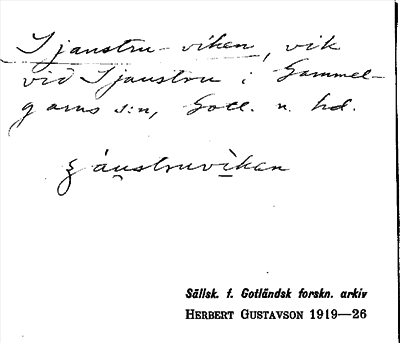 Sjaustru-viken, vik
vid Sjaustru i Gammel-
garns s:n, Gotl. n. hd.
ʒáu̯struvìkan
Sällsk. f. Gotländsk forskn. arkiv
HERBERT GUSTAVSON 1919—26